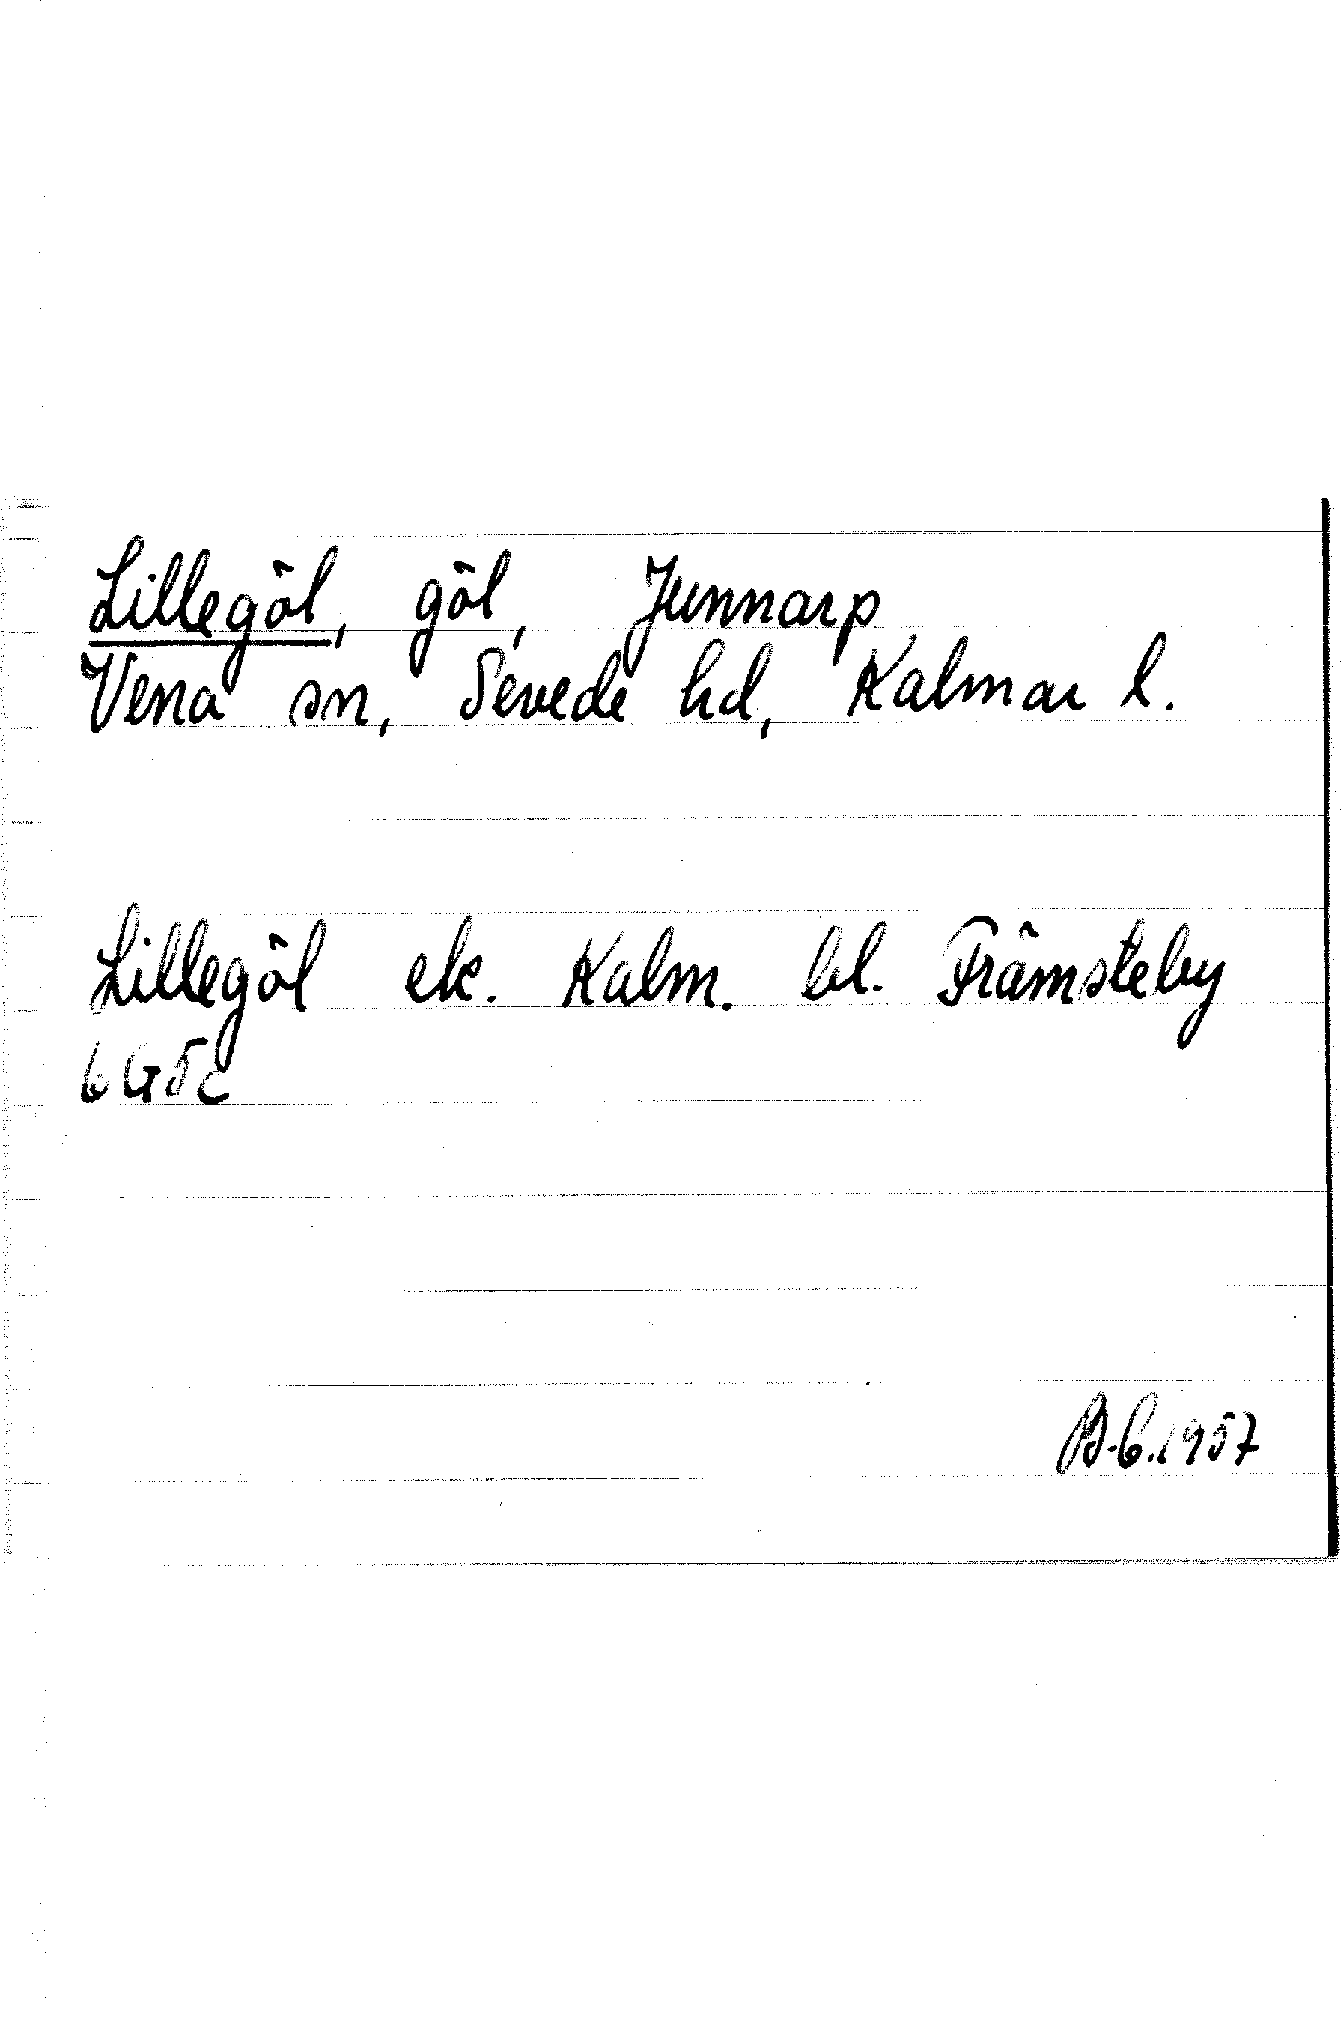 Lillegöl, göl, Junnarp
Vena sn, Sevede hd, Kalmar l.
Lillegöl ek. Kalm. bl. Främsteby
6G5c
B.C.1957